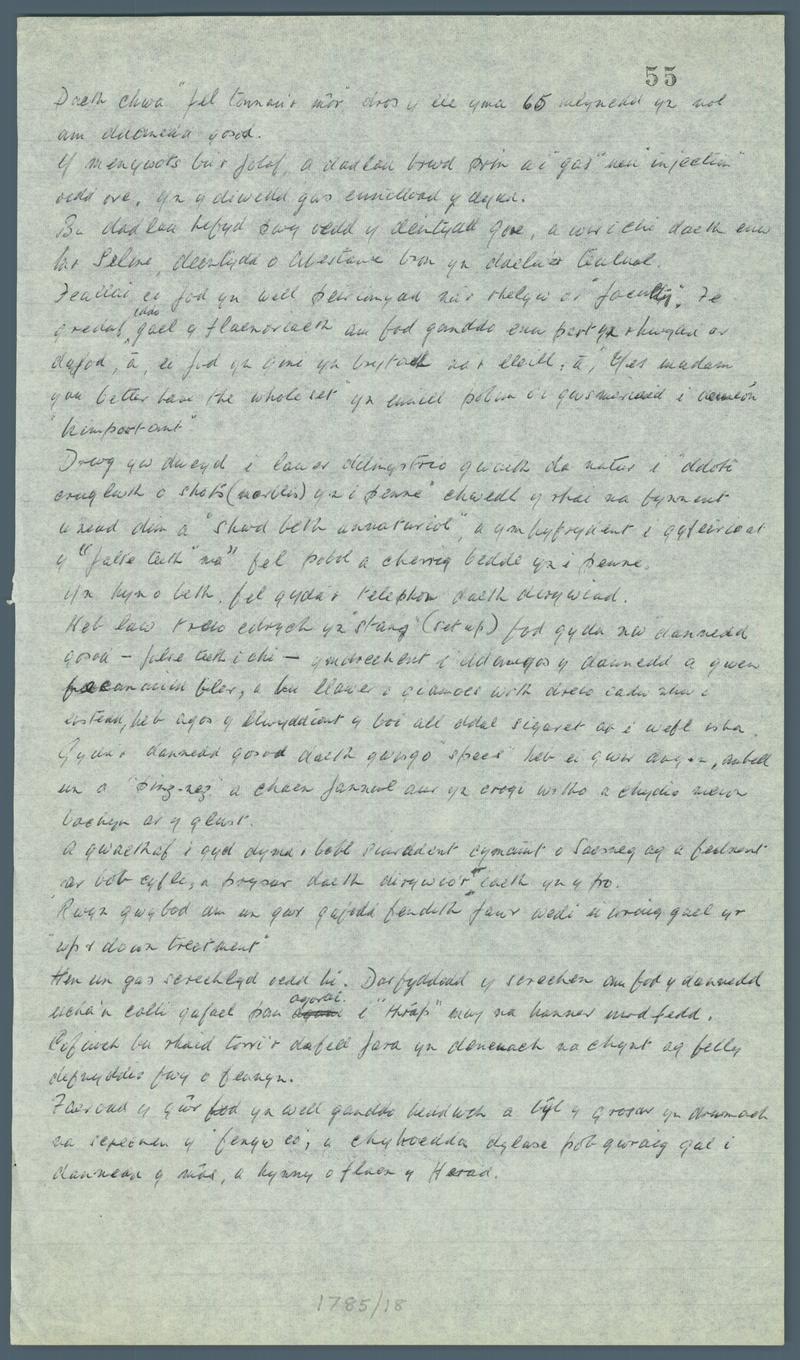 55
Daeth chwa "fel tonnau'r môr" dros y lle yma 65 mlynedd yn nol
am ddannedd gosod.
Y menywots bu'r Jolof, a dadlau brwd prin ai "gas" neu "injection"
oedd ore, yn y diwedd gas ennillodd y dydd.
Bu dadlau hefyd pwy oedd y deintydd gore, a wir i chi daeth enw
Mr Seline, deintydd o Abertawe bron yn
Teulliai ei fod yn well peirianydd na'r rhelyw o'r "faculty". Fe
gredaf, iddo gael y flaenoriaeth am fod ganddo enw pert yn rhwydd ar
dafod, ā, ei fod yn gwni yn bystach na'r lleill, ā, "Yes madam
you better have the whole set" yn ennill pobun o'i gwsmeriaid i
"himportant"
Drwg yw dweyd i lawer ddilnystrio gwaith da natur i "ddodi
cruglwth o shots (marbles) yn i penne" chwedl y rhai na fynnent
wnead dim a "shwd beth annaturiol", a ymhyfrydent i gyfeirio at
y "false teeth" na" fel pobol a cherrig bedde yn i penne.
Yn hyn o beth, fel gyda'r telephon daeth dirywiad.
Heb law treio edrych yn "stang" (set up) fod gyda nw dannedd
gosod — false teeth i chi — ymdrechent i ddangos y dannedd a gwen
fler, a bu llawer o giamoes wrth dreio cadw nhw i
instead, heb agos y llwyddient y boi all ddal sigaret ar i wefl isha.
Gyda'r dannedd gosod daeth gwisgo "specs" heb ei gwir angen, ambell
un a "pinz-nez" a chaen fannwl aur yn crogi wrtho a chydio mewn
bachyn ar y glust.
A gwaethaf i gyd dyma'r bobl siaradent cymaint o Saesneg ag a fedrent
ar bob cyfle, a prysur daeth dirywio'r iaeth yn y fro.
'Rwyn gwybod am un gwr gafodd fendith fawr wedi ei wraig gael yr
"up & down treatment"
Hen un gas screchlyd oedd hi. Darfyddodd y screchen am fod y dannedd
ucha'n colli gafael pan agorai i "thrap" mwy na hanner modfedd.
Cofiwch bu rhaid torri'r dafell fara yn deneuach na chynt ag felly
defnyddio fwy o fennyn.
Faeroad y gŵr fod yn well ganddo heddwch a bil y grosar yn drwmach
na screchen y "fenyw co", a chyhoedda dylase pob gwraig gal i
dannedd y mâs, a hynny o flaen y Herad.
1785/18